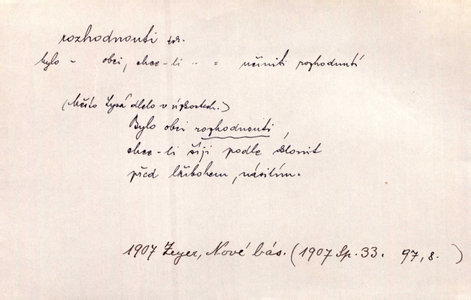 rozhodnouti
bylo – obci, chce-li .. = učiniti rozhodnutí
(Město Lysá dlelo v úzkostech.)
Bylo obci rozhodnouti,
chce-li šíji podle sklonit
před lžibohem, násilím.
1907 Zeyer, Nové bás. (1907 Sp. 33. 97, 8.)